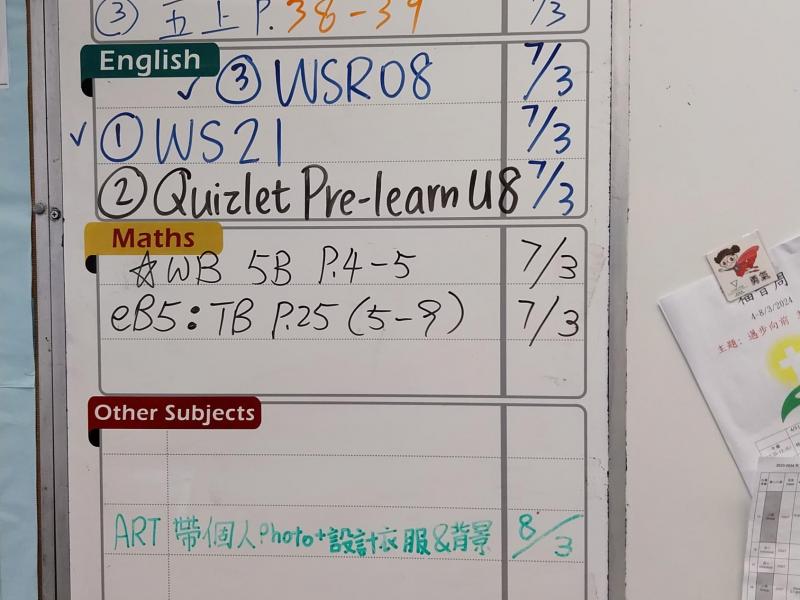 ③ 五上 P.38-39 7/3
English
✓ ③ WSR08 7/3
✓ ① WS21 7/3
② Quizlet Pre-learn U8 7/3
Maths
☆WB 5B P.4-5 7/3
eB5: TB P.25 (5-9) 7/3
Other Subjects
ART 帶個人Photo+設計衣服&背景 8/3
勇氣
福音周
4-8/3/2024
主題: 邁步向前